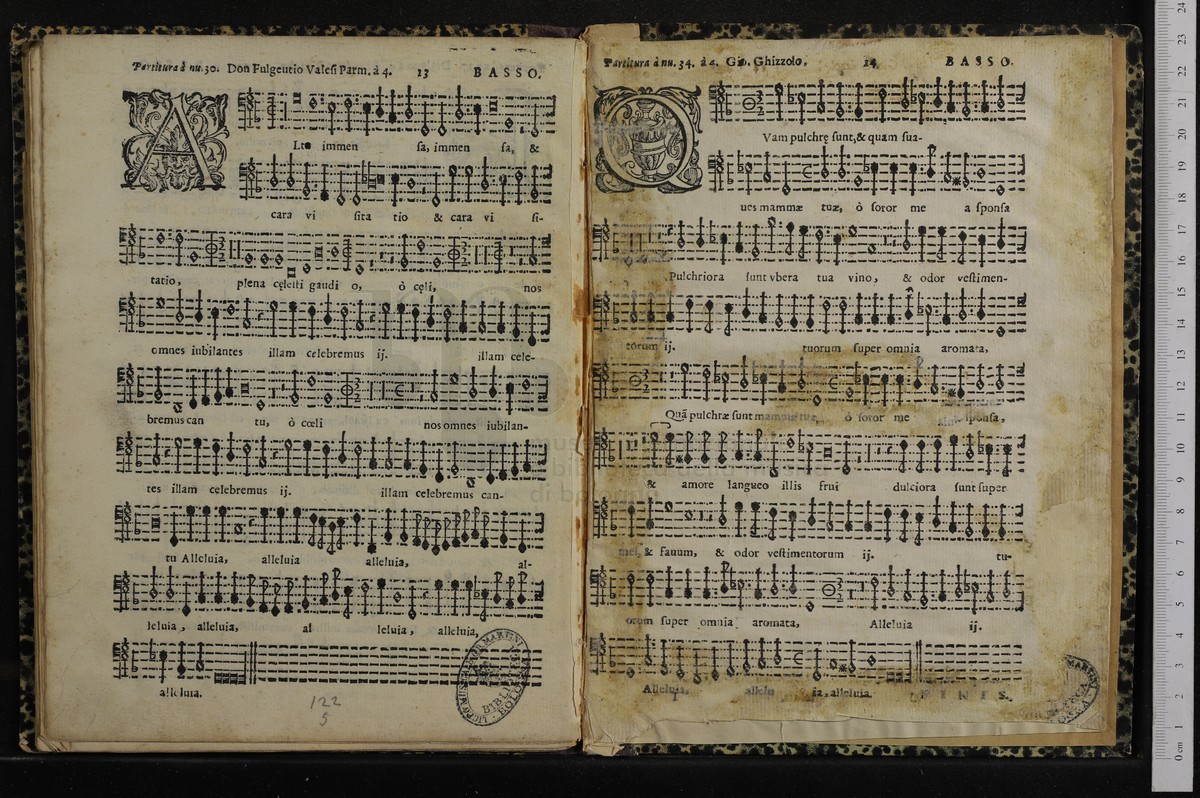 Partitura à nu. 30. Don Fulgentio Valesi Parm. à 4. 13 BASSO.
A Lta immen sa, immen sa, &
cara vi sita tio & cara vi si-
tatio, plena cęlesti gaudi o, ò cęli, nos
omnes iubilantes illam celebremus ij. illam cele-
bremus can tu, ò cœli nos omnes iubilan-
tes illam celebremus ij. illam celebremus can-
tu Alleluia, alleluia alleluia, al-
leluia, alleluia, al leluia, alleluia,
alleluia.
122
5
Partitura à nu. 34. à 4. Gio. Ghizzolo. 14 BASSO.
Q Vam pulchrę sunt, & quam sua-
ues mammæ tuæ, ò soror me a sponsa
Pulchriora sunt vbera tua vino, & odor vestimen-
torum ij. tuorum super omnia aromata,
Quã pulchræ sunt mammæ tuæ, ò soror me sponsa,
& amore langueo illis frui dulciora sunt super
mel, & fauum, & odor vestimentorum ij. tu-
orum super omnia aromata, Alleluia ij.
Alleluia, allelu ia, alleluia. FINIS.